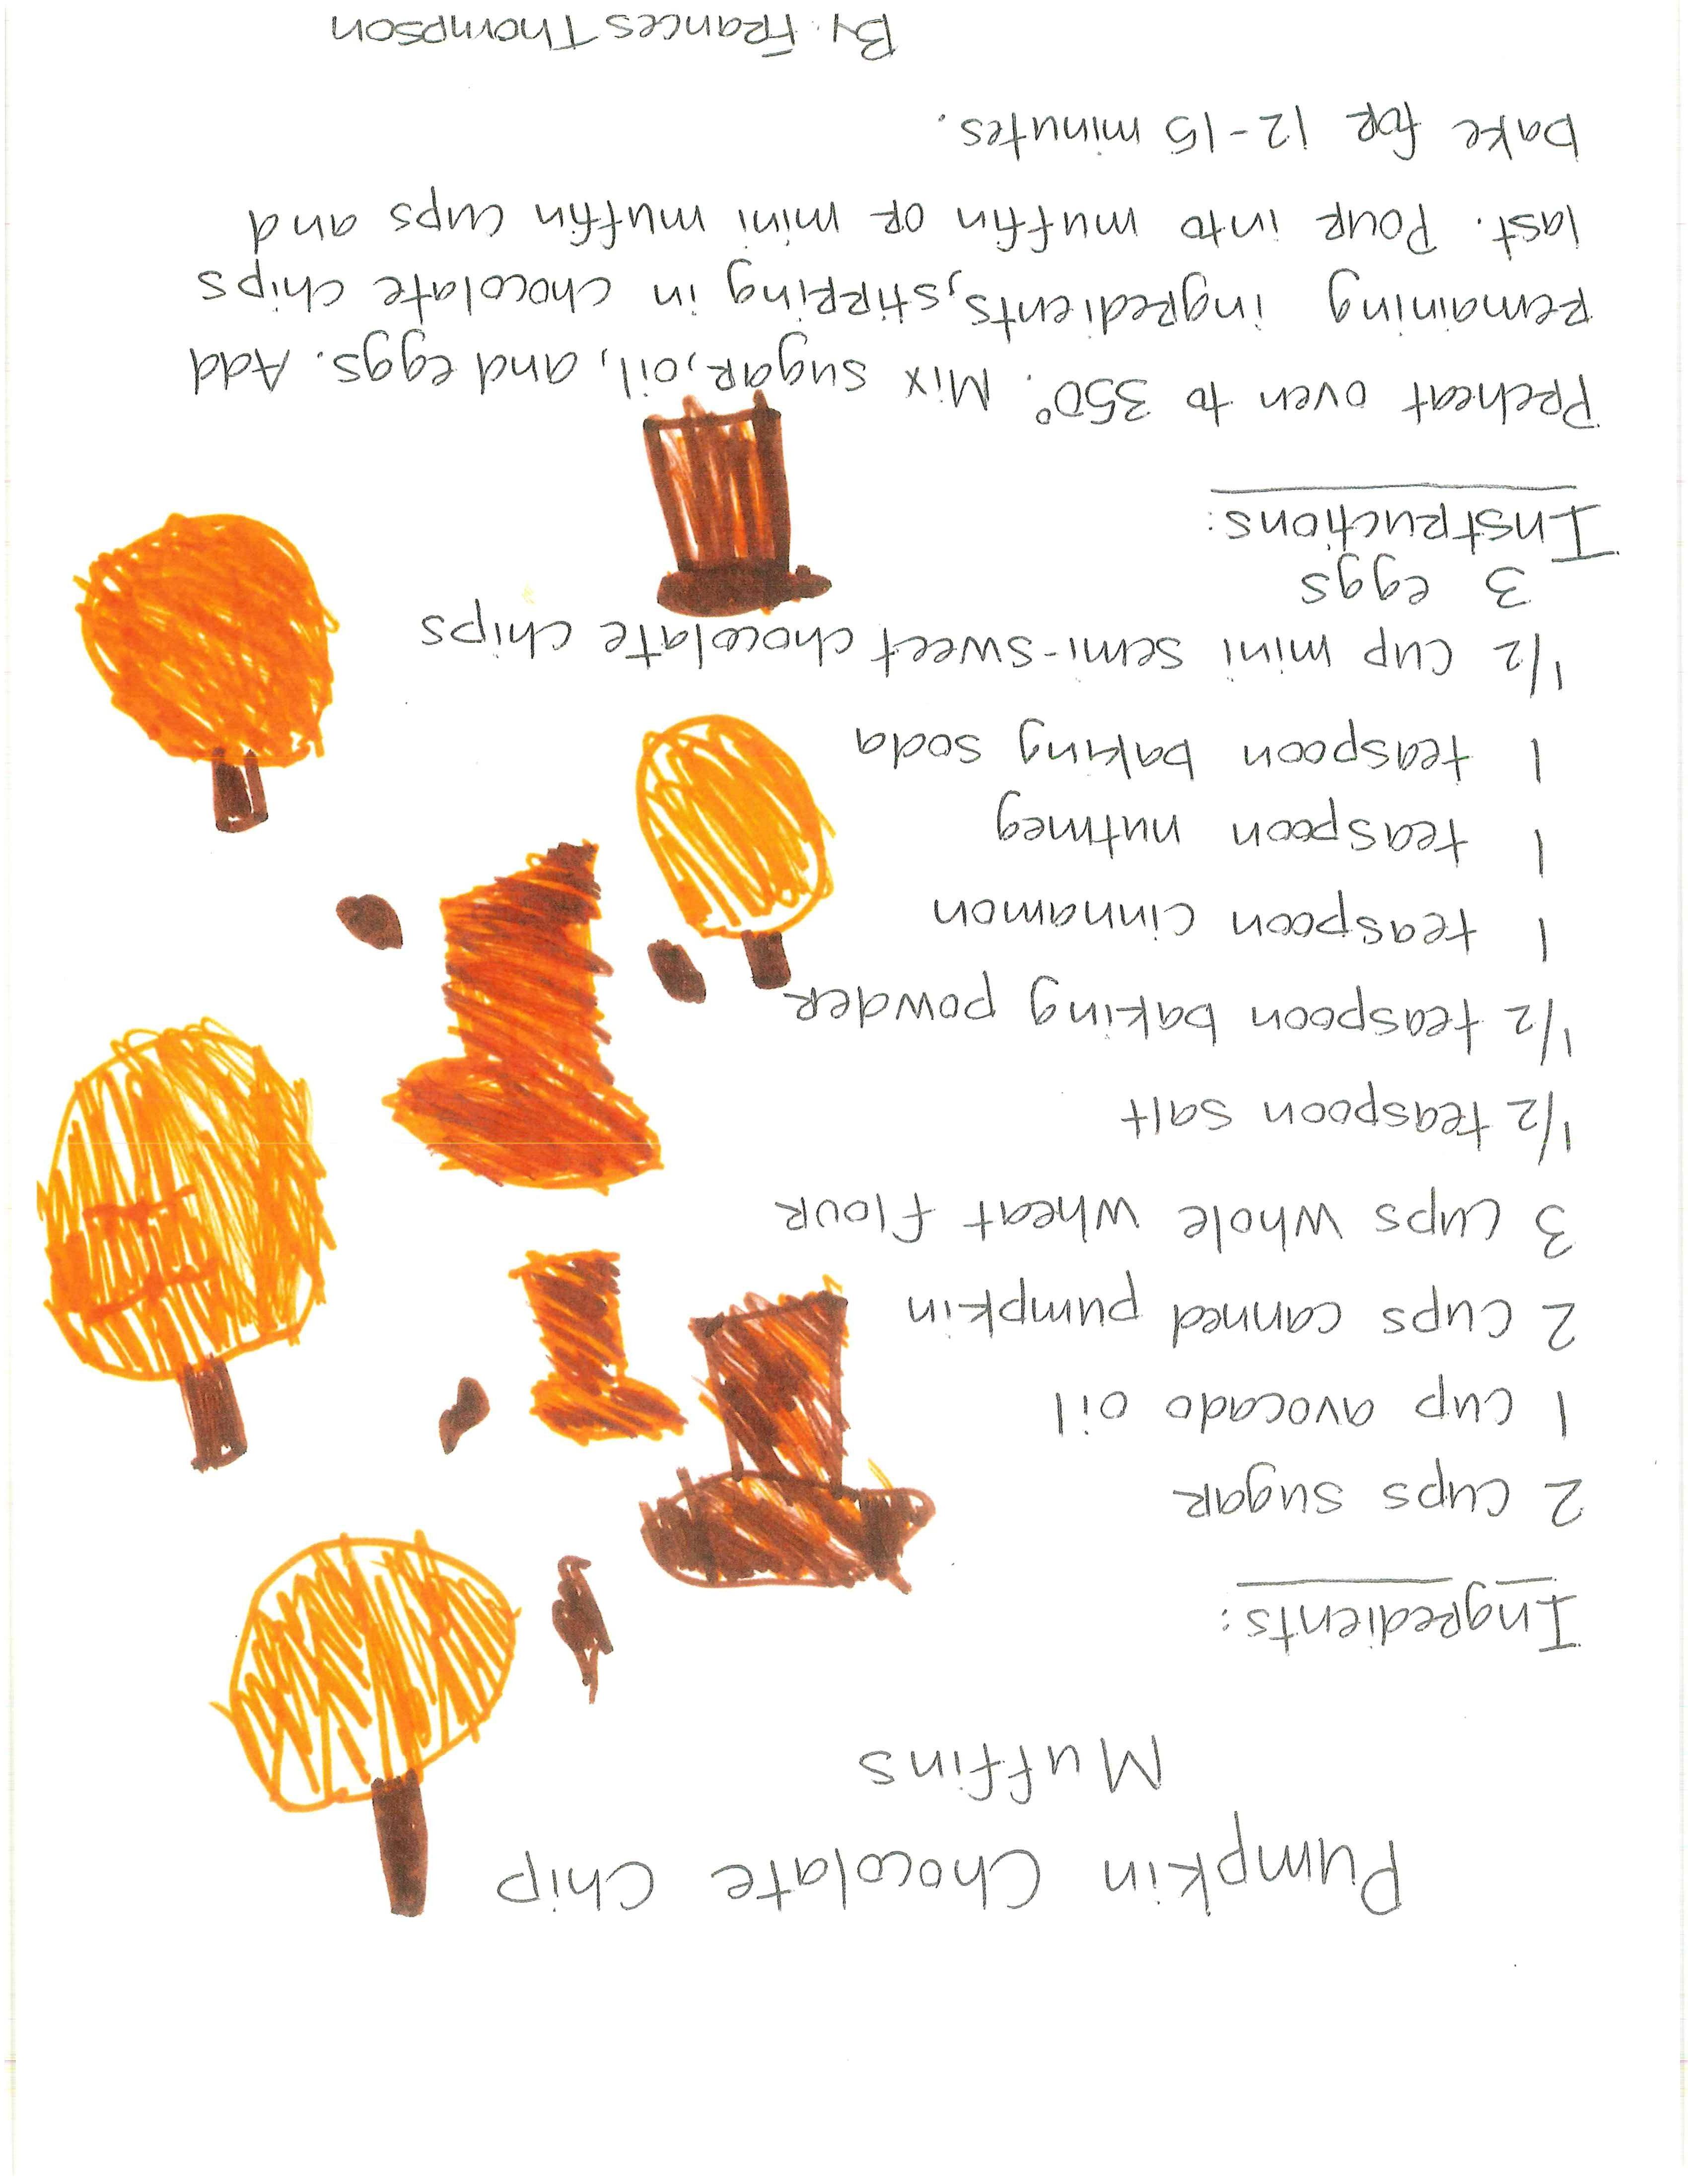 Pumpkin Chocolate Chip
Muffins
Ingredients:
2 cups sugar
1 cup avocado oil
2 cups canned pumpkin
3 cups whole wheat flour
1/2 teaspoon salt
1/2 teaspoon baking powder
1 teaspoon cinnamon
1 teaspoon nutmeg
1 teaspoon baking soda
1/2 cup mini semi-sweet chocolate chips
3 eggs
Instructions:
Preheat oven to 350°. Mix sugar, oil, and eggs. Add
remaining ingredients, stirring in chocolate chips
last. Pour into muffin or mini muffin cups and
bake for 12-15 minutes.
By: Frances Thompson